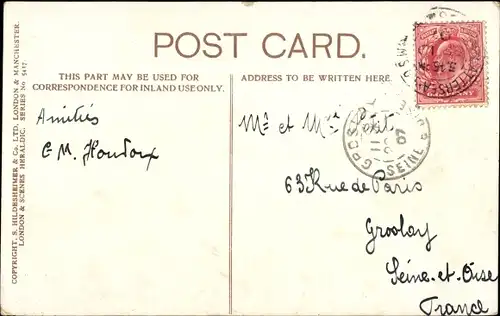 POST CARD.
THIS PART MAY BE USED FOR
CORRESPONDENCE FOR INLAND USE ONLY.
ADDRESS TO BE WRITTEN HERE.
COPYRIGHT, S. HILDESHEIMER & Co. LTD. LONDON & MANCHESTER.
LONDON & SCENES HERALDIC. SERIES No 5417.
Amitiés
C M. Houdoux
Mr et Mme
63 Rue de Paris
Groslay
Seine-et-Oise
France
BATTERSEA S.W.
GROSLAY
07
SEINE